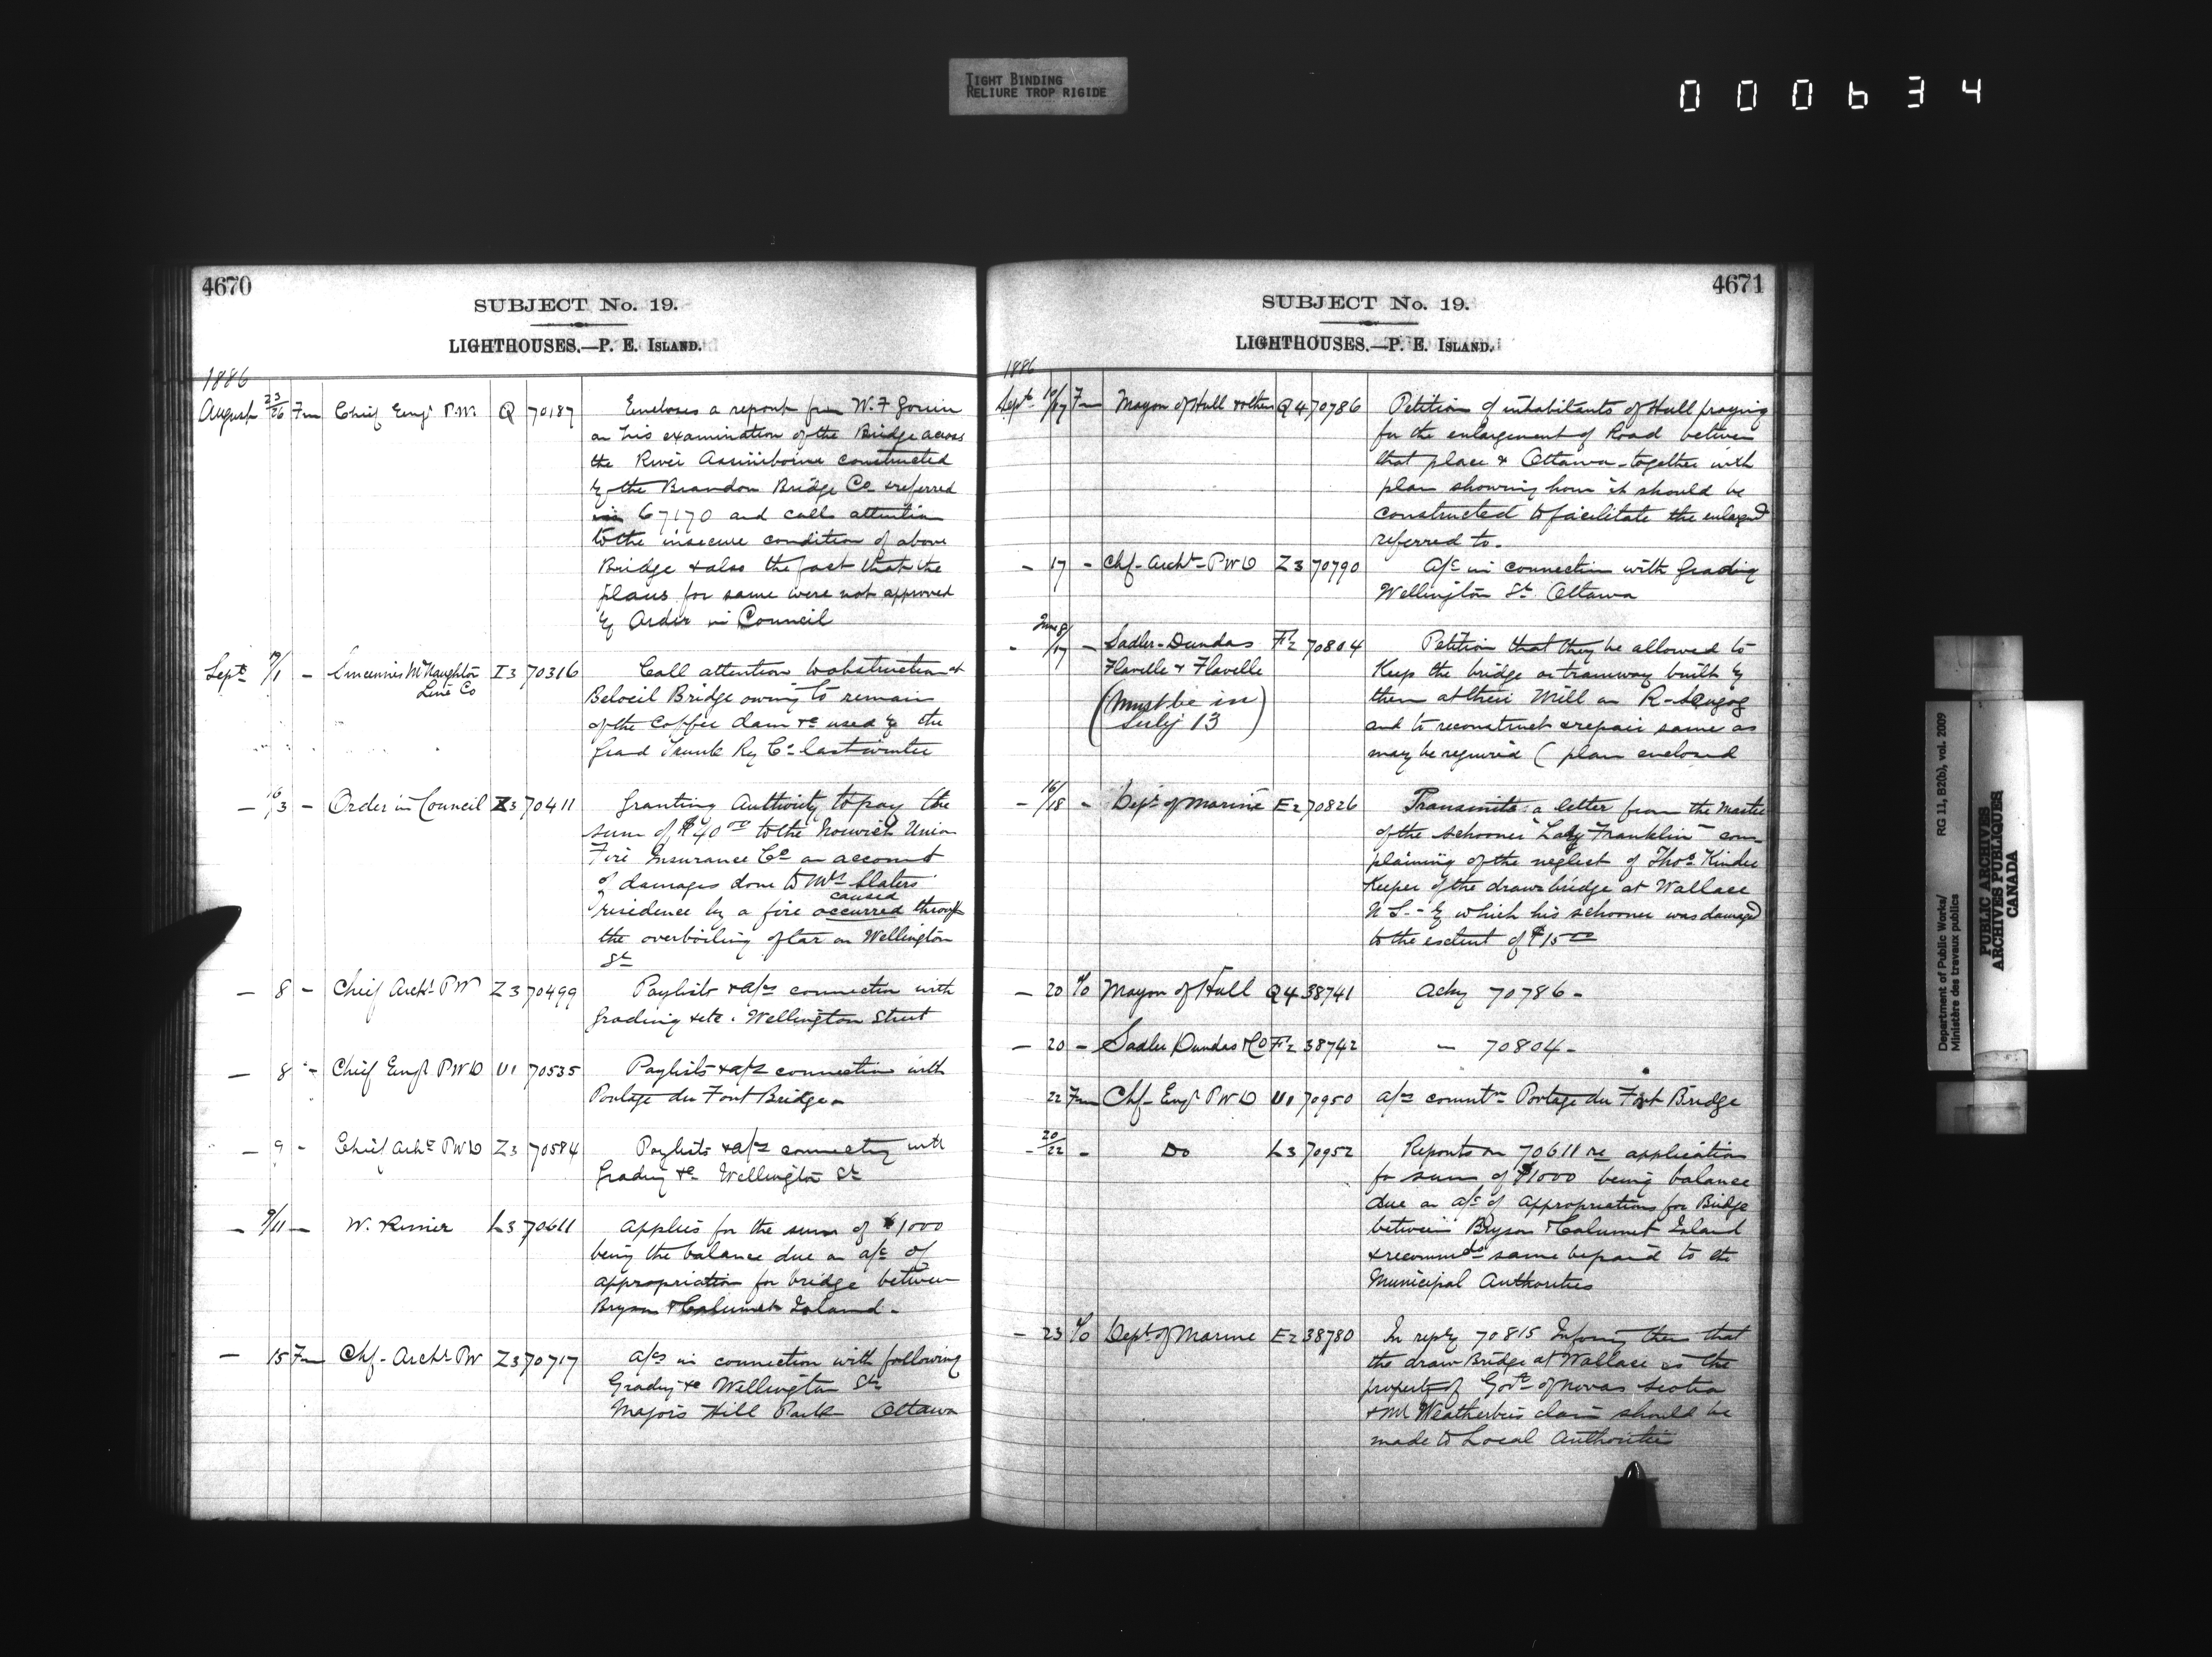 TIGHT BINDING
RELIURE TROP RIGIDE
000634
4670
SUBJECT No. 19.
LIGHTHOUSES.—P. E. ISLAND.
1886
August 23/26 Fm Chief Engr P.W. Q 70187 Encloses a report from W. F Gouin
on his examination of the Bridge across
the River Assiniboine constructed
by the Brandon Bridge Co & referred
in 67170 and calls attention
to the insecure condition of above
Bridge & also the fact that the
plans for same were not approved
by Order in Council
Sept /1 - McNaughton I3 70316 Call attention to obstruction at
Line Co
Beloeil Bridge owing to remain
of the Coffer dam &c used by the
Grand Trunk Ry Co last winter
— 16/3 - Order in Council Z3 70411 Granting Authority to pay the
sum of $40.00 to the Norwich Union
Fire Insurance Co on account
of damages done to Slaters
caused
residence by a fire occurred through
the overboiling of tar on Wellington
St
— 8 - Chief Archt PW Z3 70499 Paylists & a/cs connection with
Grading & etc. Wellington Street
— 8 - Chief Engr PWD U1 70535 Paylists & a/cs connection with
Portage du Fort Bridge
— 9 - Chief Archt PWD Z3 70584 Paylists & a/cs connection with
Grading &c Wellington St
— 9/11 — W. L3 70611 Applies for the sum of $1000
being the balance due on a/c of
appropriation for bridge between
Bryson & Calumet Island -
— 15 Fm Chf- Archt PW Z3 70717 a/cs in connection with following
Grading &c Wellington St
Majors Hill Park Ottawa
4671
SUBJECT No. 19.
LIGHTHOUSES.—P. E. ISLAND.
1886
Sept. /17 Fm Mayor of Hull & others Q4 70786 Petition of inhabitants of Hull praying
for the enlargement of Road between
that place & Ottawa - together with
plan showing how it should be
constructed to facilitate the
referred to.
— 17 - Chf- Archt- PWD Z3 70790 a/c in connection with Grading
Wellington St. Ottawa
June 8/
- /17 - Sadler- Dundas F2 70804 Petition that they be allowed to
Flavelle & Flavelle Keep the bridge or tramway built by
(Must be in them at their Mill on R- Scugog
July 13) and to reconstruct & repair same as
may be required (plan enclosed
- 16/18 - Dept of Marine E2 70826 Transmits a letter from the Master
of the schooner "Lady Franklin" com-
plaining of the neglect of Thos Kinder
Keeper of the drawbridge at Wallace
N S. - by which his schooner was damaged
to the extent of $15.00
— 20 To Mayor of Hull Q4 38741 Ackg 70786 -
— 20 - Sadler Dundas & Co F2 38742 — 70804 -
22 Fm Chf- Engr PWD U1 70950 a/cs Portage du Fort Bridge
- 20/22 - Do L3 70952 Reports on 70611 re application
for sum of $1000 being balance
due on a/c of Appropriations for Bridge
between Bryson & Calumet Island
& recommds same be paid to the
Municipal Authorities
— 23 To Dept of Marine E2 38780 In reply 70815 Informg them that
the draw Bridge at Wallace is the
property of Govt of Novas Scotia
& Mr Weatherbies claim should be
made to Local Authorities
Department of Public Works/
Ministère des travaux publics
RG 11, B2(b), vol. 2009
PUBLIC ARCHIVES
ARCHIVES PUBLIQUES
CANADA